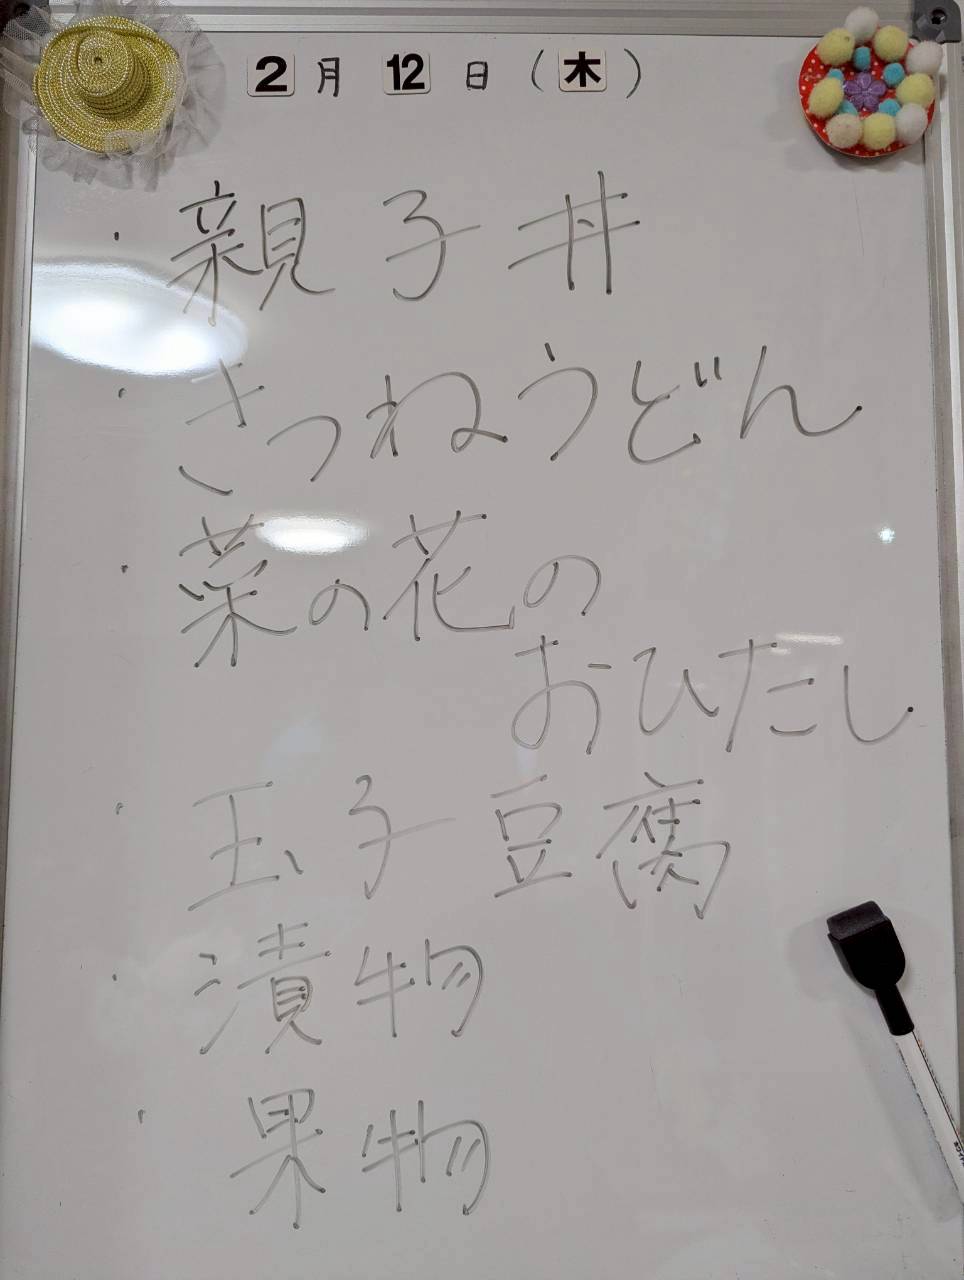 2月12日(木)
・親子丼
・きつねうどん
・菜の花の
おひたし
・玉子豆腐
・漬物
・果物